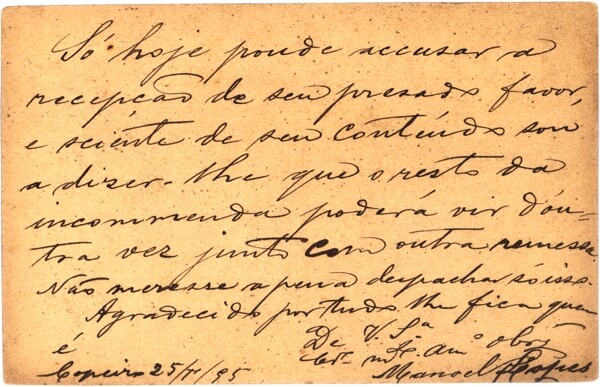 Só hoje poude accusar a
recepção de seu presado favor,
e sciente de seu contéudo sou
a dizer-lhe que o resto da
incommenda poderá vir d'ou-
tra vez junto com outra remessa.
Não meresse a pena despachar só isso.
Agradecido por tudo lhe fica quem
é De V. Sª
Cr.º m.to Am.º obr.º
Copeiro 25/ /95 Manoel Lopes